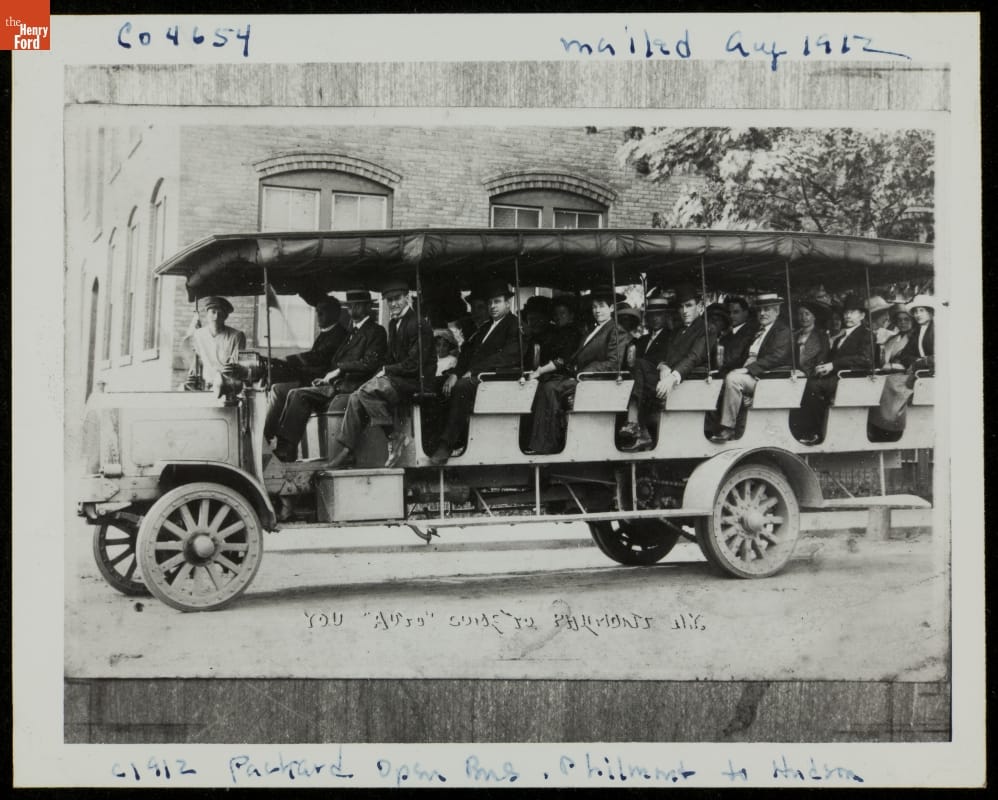 the
Henry
Ford
Co 4654
mailed Aug 1912
YOU "AUTO" COME TO PHILMONT N.Y.
c1912 Packard Open Bus, Philmont to Hudson